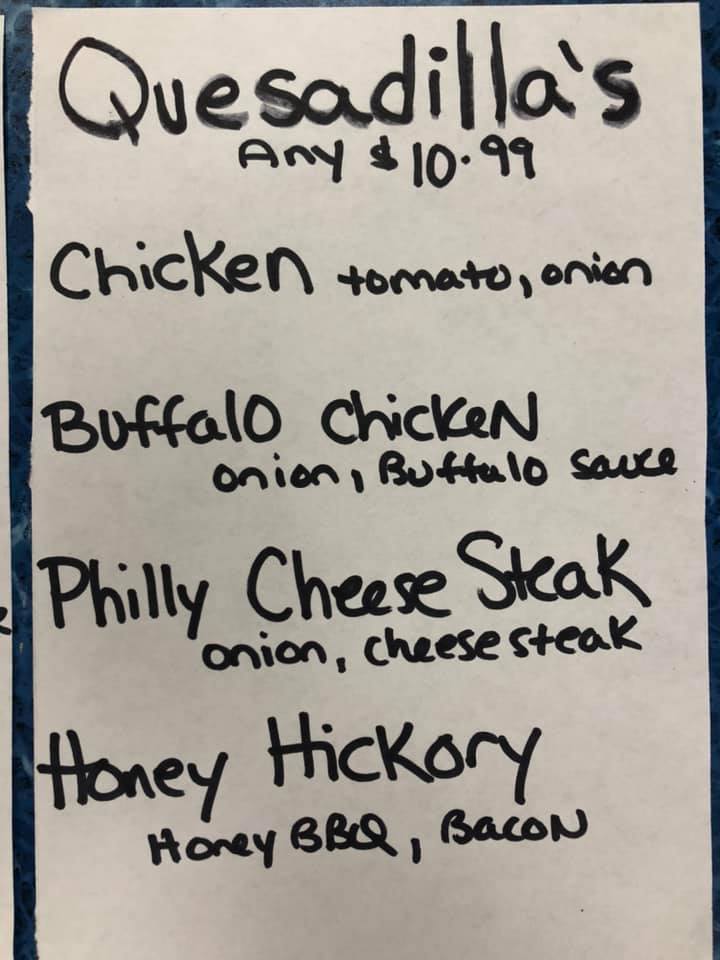 Quesadilla's
Any $10.99
Chicken tomato, onion
Buffalo ChickeN
onion, Buffalo sauce
Philly Cheese Steak
onion, cheesesteak
Honey Hickory
Honey BBQ, BacoN